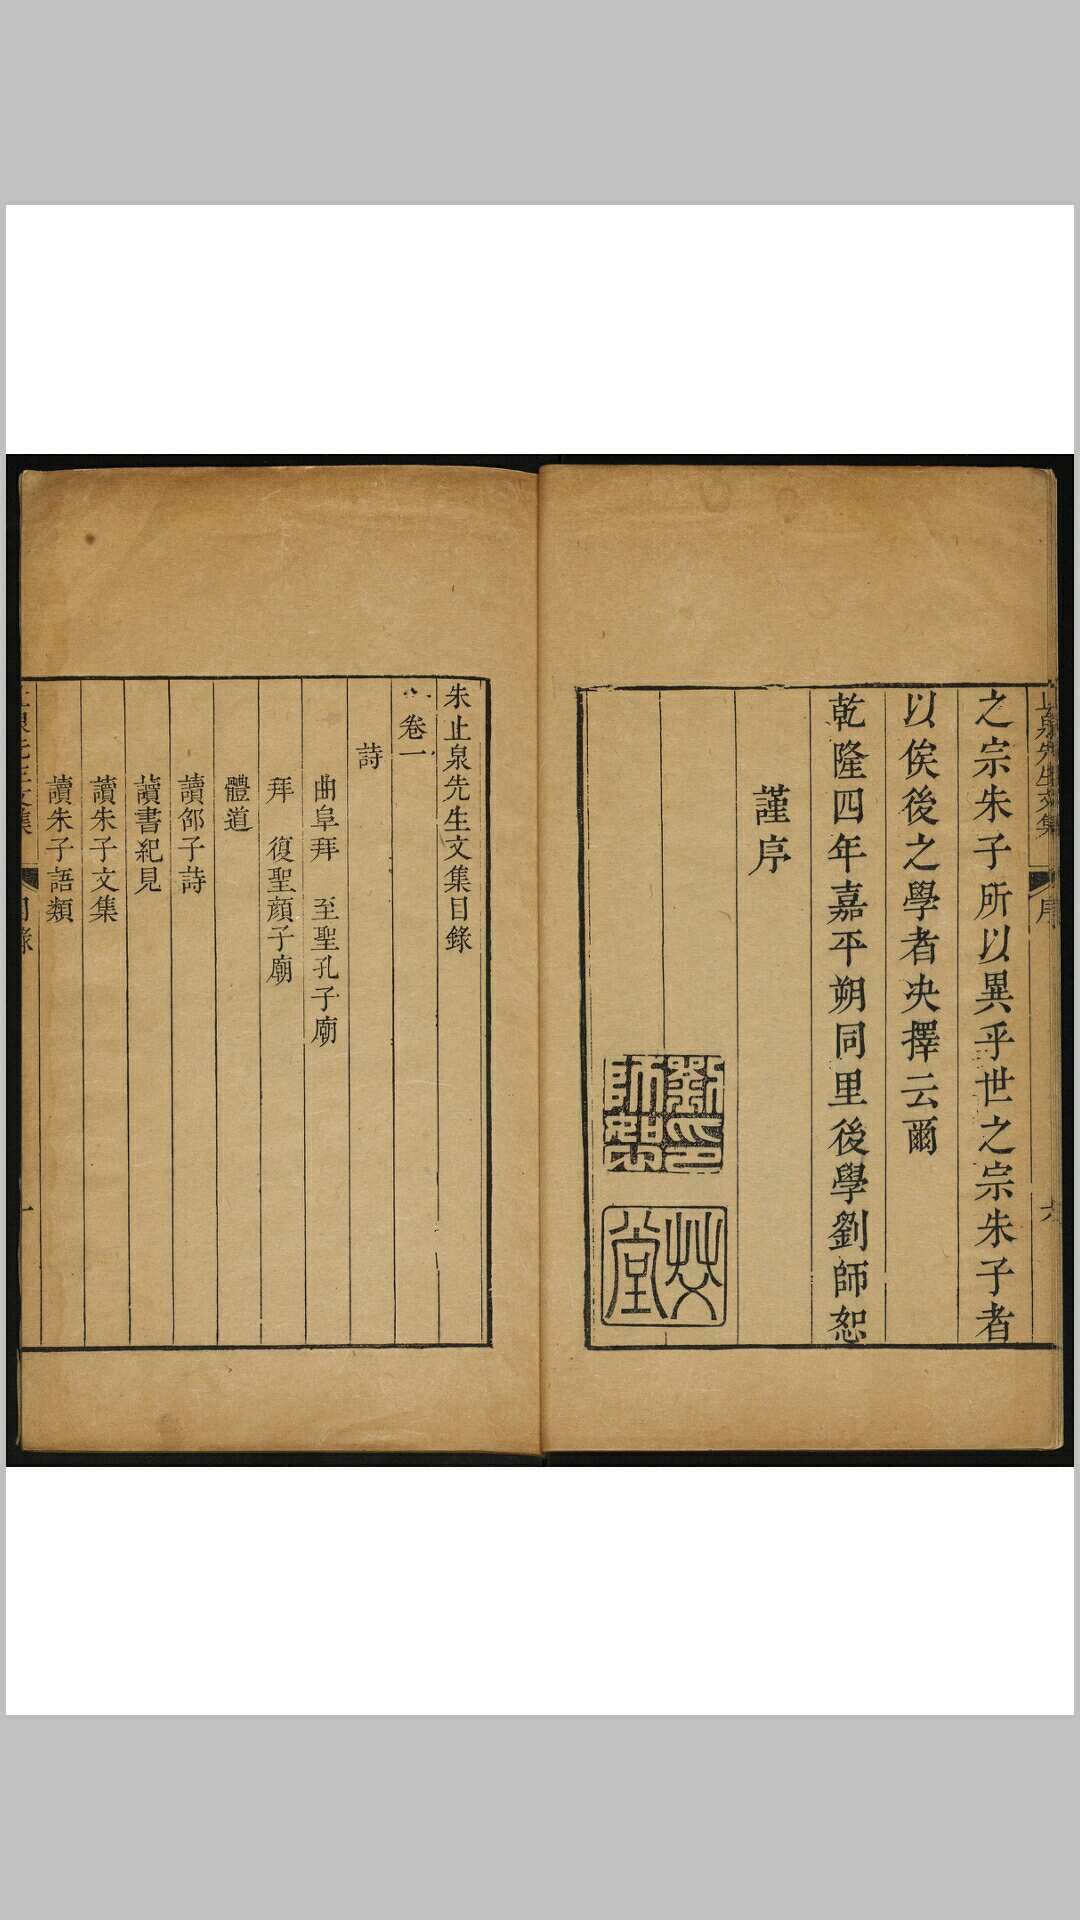 止泉先生文集
序
六
之宗朱子所以異乎世之宗朱子者
以俟後之學者决擇云爾
乾隆四年嘉平朔同里後學劉師恕
謹序
劉印師恕
堂
朱止泉先生文集目錄
卷一
詩
曲阜拜　至聖孔子廟
拜　復聖顔子廟
體道
讀邵子詩
讀書紀見
讀朱子文集
讀朱子語類
止泉先生文集
目錄
一